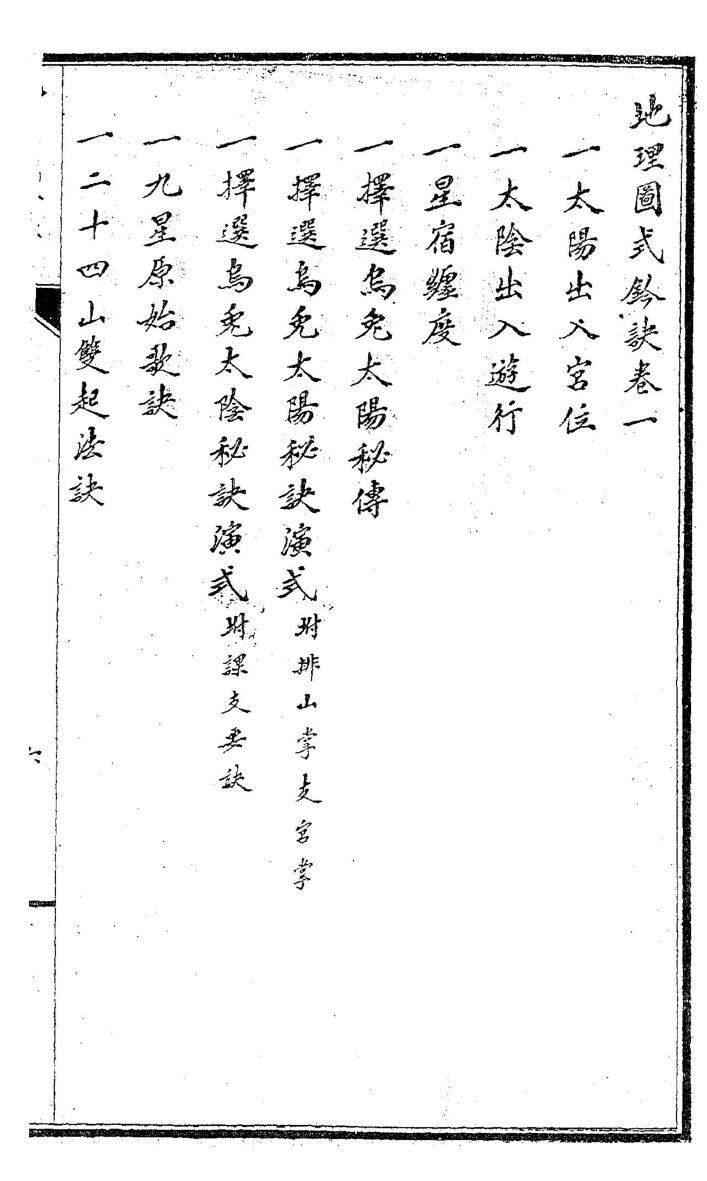 地理圖式鈐訣卷一
一太陽出入宮位
一太陰出入遊行
一星宿纏度
一擇選烏兔太陽秘傳
一擇選烏兔太陽秘訣演式 附排山掌支宮掌
一擇選烏兔太陰秘訣演式 附課支要訣
一九星原始歌訣
一二十四山雙起法訣